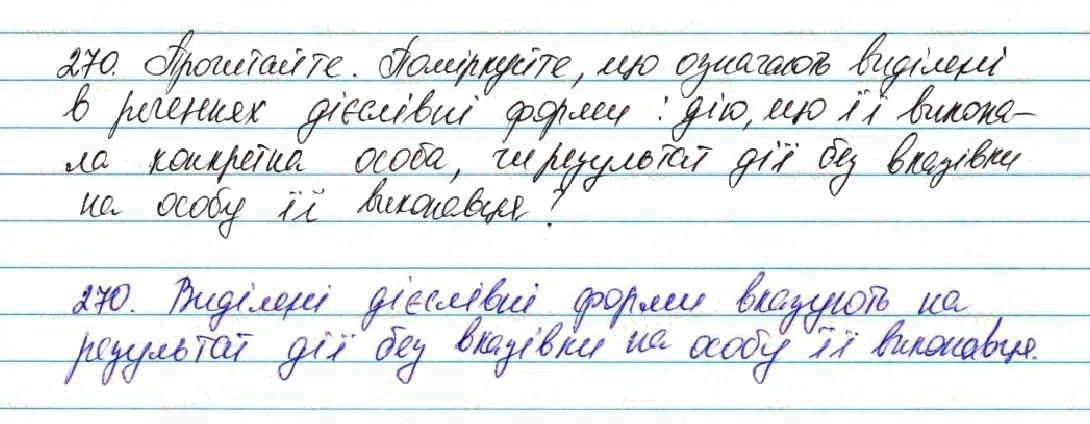 270. Прочитайте. Поміркуйте, що означають виділені
в реченнях дієслівні форми: дію, що її викона-
ла конкретна особа, чи результат дії без вказівки
на особу її виконавця?
270. Виділені дієслівні форми вказують на
результат дії без вказівки на особу її виконавця.